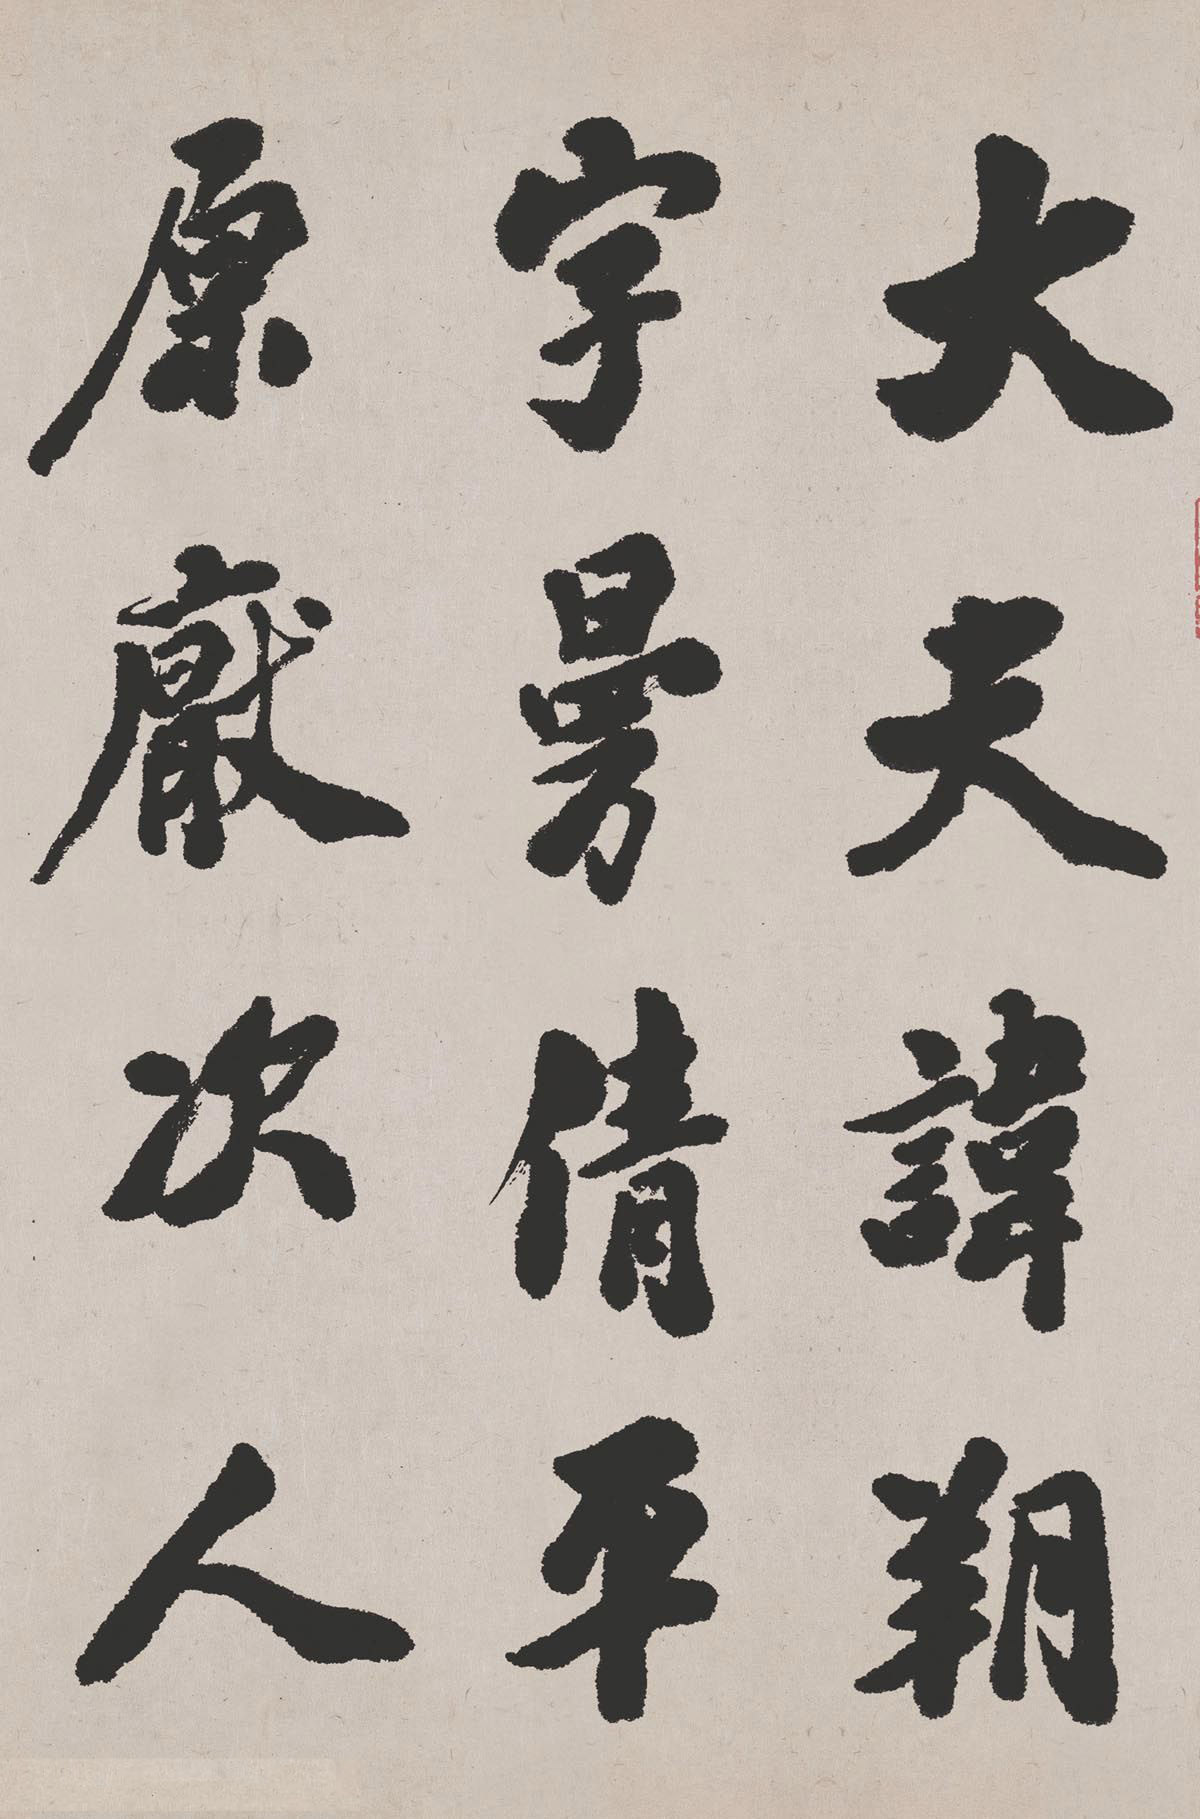 大夫諱朔
字曼倩平
原厭次人